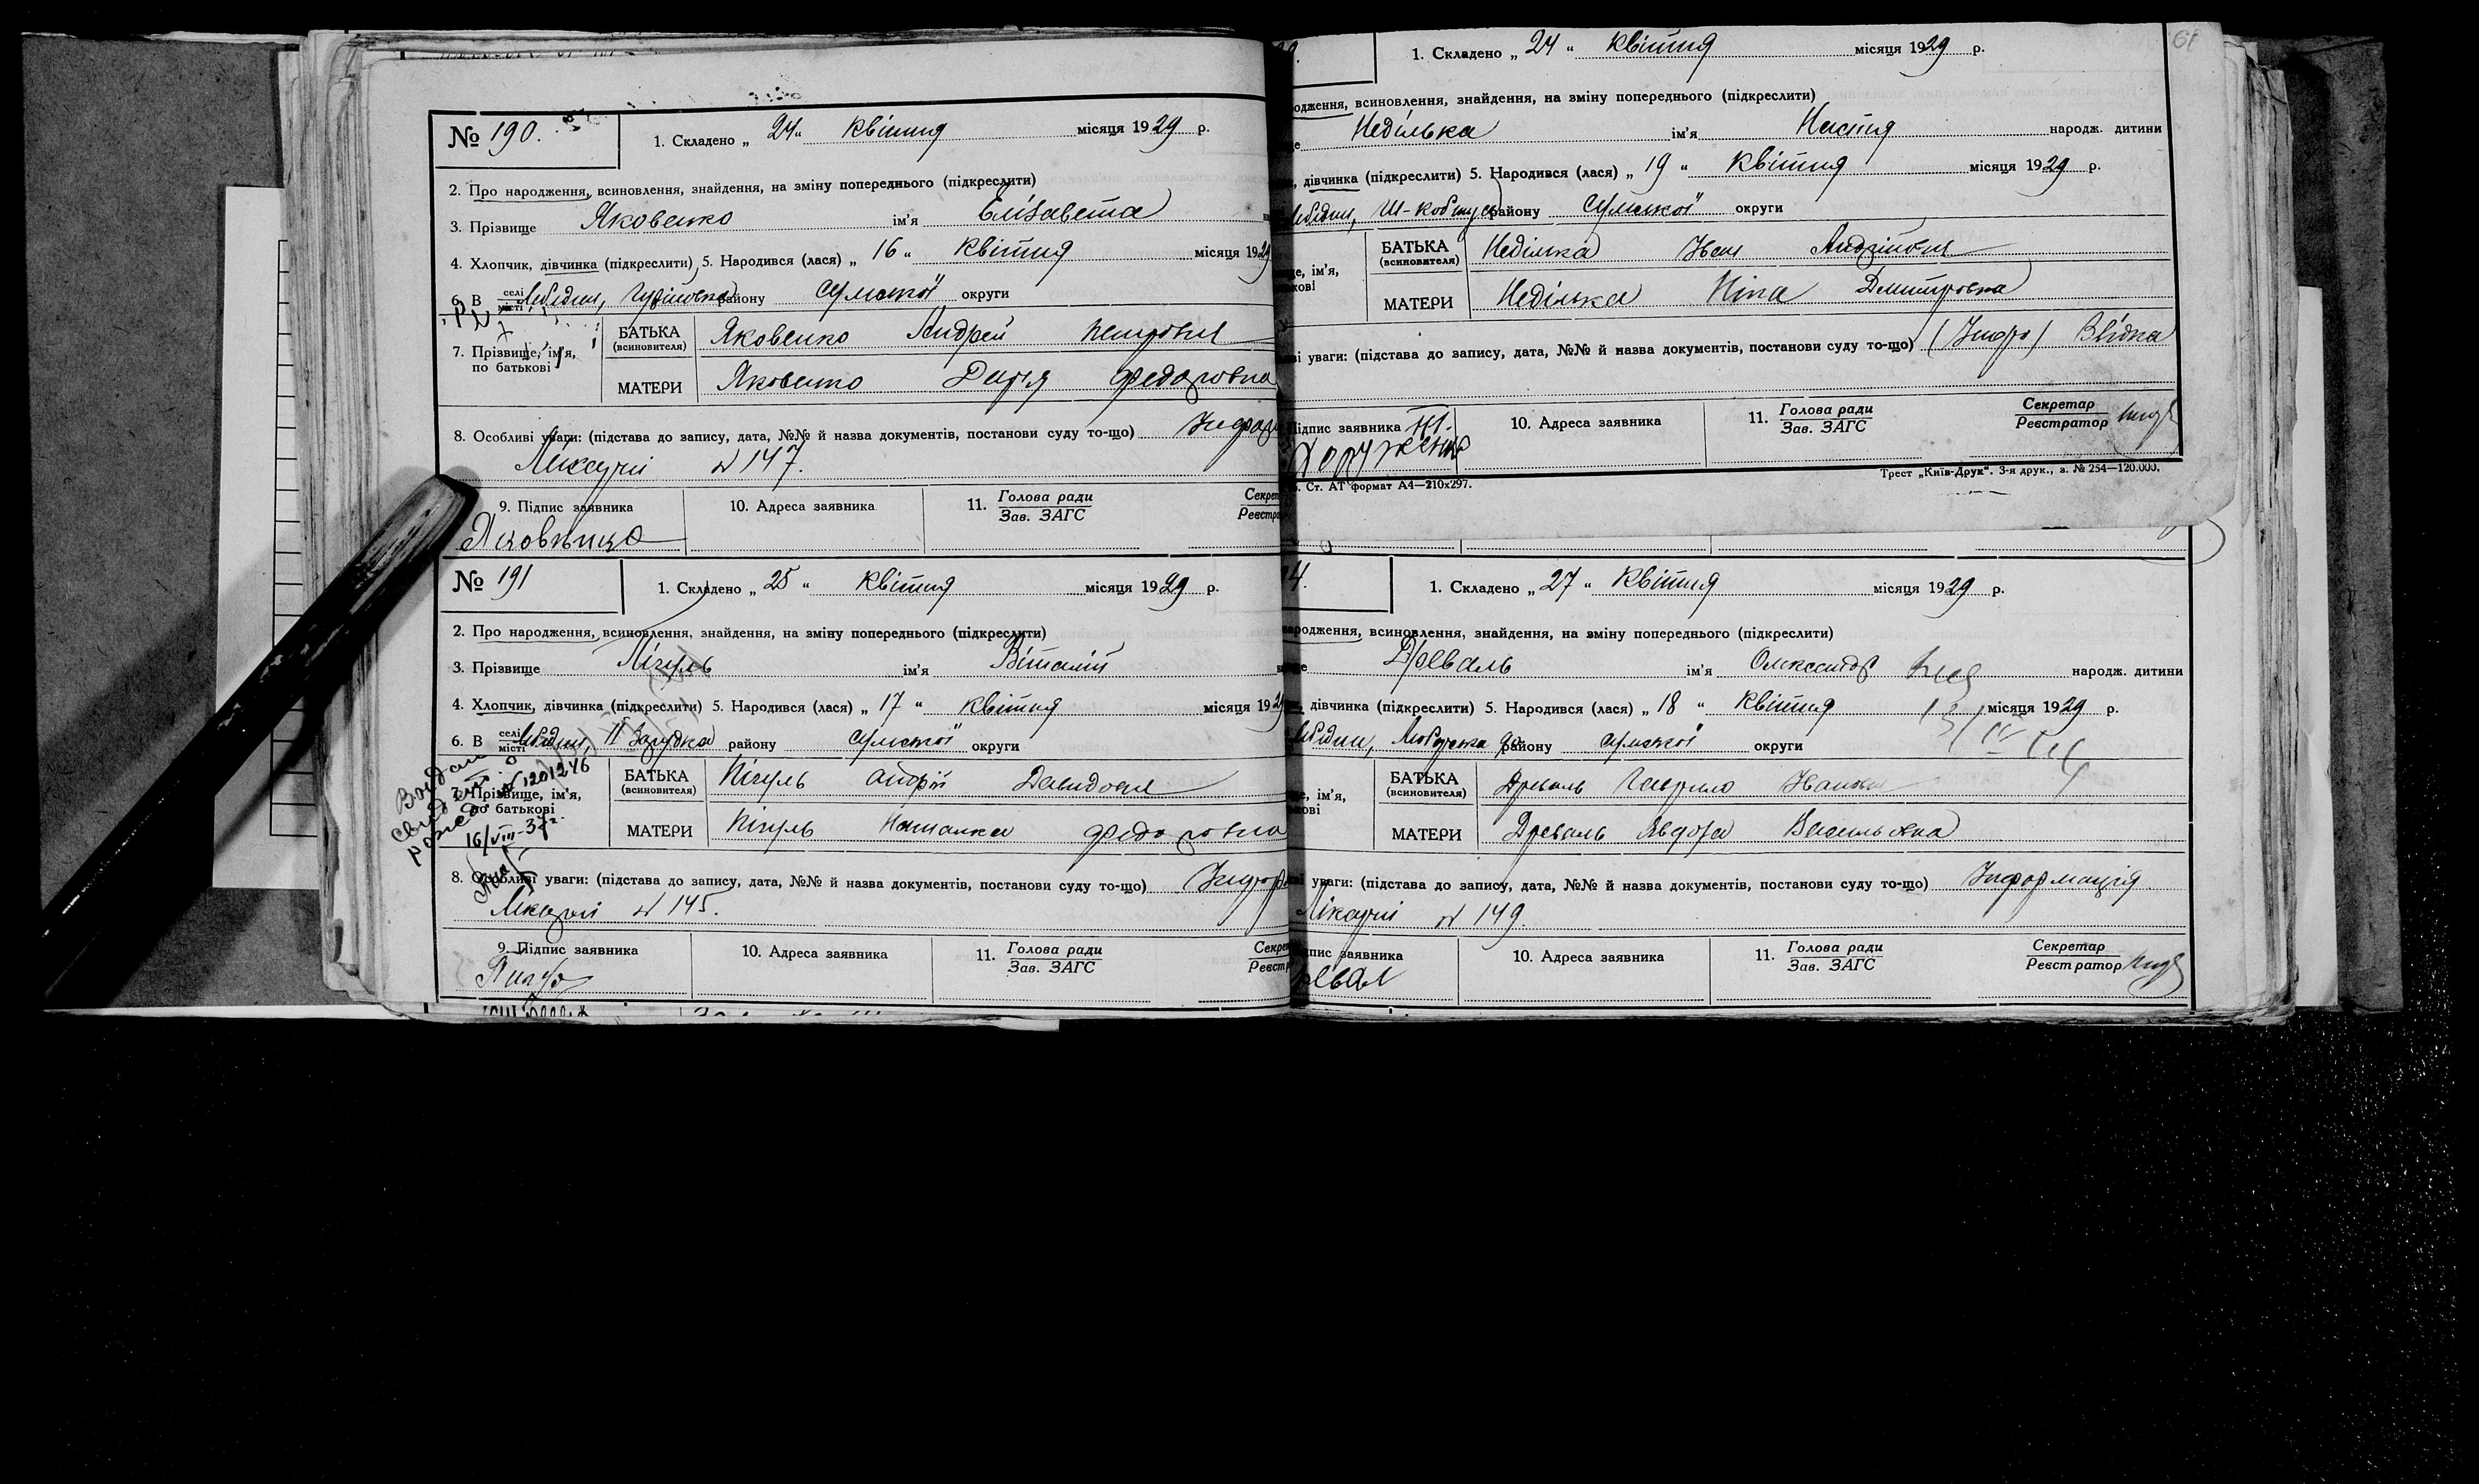 № 190.
1. Складено „ 24 “ квітня місяця 1929 р.
2. Про народження, всиновлення, знайдення, на зміну попереднього (підкреслити)
3. Прізвище Яковенко ім'я Елізавета
4. Хлопчик, дівчинка (підкреслити) 5. Народився (лася) „ 16 “ квітня місяця 1929
6. В селі місті Лебедин, району Сумської округи
7. Прізвище, ім'я, по батькові
БАТЬКА (всиновителя) Яковенко Андрей Петрович
МАТЕРИ Яковенко Дар'я Федоровна
8. Особливі уваги: (підстава до запису, дата, №№ й назва документів, постанови суду то-що)
Лікарні № 147.
9. Підпис заявника
10. Адреса заявника
11. Голова ради
Зав. ЗАГС
Яковенко
№ 191
1. Складено „ 25 “ квітня місяця 1929 р.
2. Про народження, всиновлення, знайдення, на зміну попереднього (підкреслити)
3. Прізвище Пігуль ім'я Віталій
4. Хлопчик, дівчинка (підкреслити) 5. Народився (лася) „ 17 “ квітня місяця 192
6. В селі місті Лебедин, району Сумської округи
№ 1201246
7. Прізвище, ім'я, по батькові
16/VIII-37г.
БАТЬКА (всиновителя) Пігуль Андрій Давидович
МАТЕРИ Пігуль Наталка Федоровна
8. Особливі уваги: (підстава до запису, дата, №№ й назва документів, постанови суду то-що)
Лікарні № 145.
9. Підпис заявника
10. Адреса заявника
11. Голова ради
Зав. ЗАГС
1. Складено „ 24 “ квітня місяця 1929 р.
одження, всиновлення, знайдення, на зміну попереднього (підкреслити)
Неділька ім'я Настя народж. дитини
дівчинка (підкреслити) 5. Народився (лася) „ 19 “ квітня місяця 1929 р.
району Сумської округи
БАТЬКА (всиновителя) Неділька Іван
МАТЕРИ Неділька Ніна Дмитровна
уваги: (підстава до запису, дата, №№ й назва документів, постанови суду то-що)
Підпис заявника
10. Адреса заявника
11. Голова ради
Зав. ЗАГС
Секретар
Реєстратор
Ст. АТ формат А4—210х297.
Трест „Київ-Друк“. 3-я друк., з. № 254—120.000.
4.
1. Складено „ 27 “ квітня місяця 1929 р.
ародження, всиновлення, знайдення, на зміну попереднього (підкреслити)
Древаль ім'я Олександр народж. дитини
дівчинка (підкреслити) 5. Народився (лася) „ 18 “ квітня місяця 1929 р.
району Сумської округи
БАТЬКА (всиновителя) Древаль Гаврило
МАТЕРИ Древаль Васильовна
уваги: (підстава до запису, дата, №№ й назва документів, постанови суду то-що) Інформація
Лікарні № 149.
заявника
10. Адреса заявника
11. Голова ради
Зав. ЗАГС
Секретар
Реєстратор